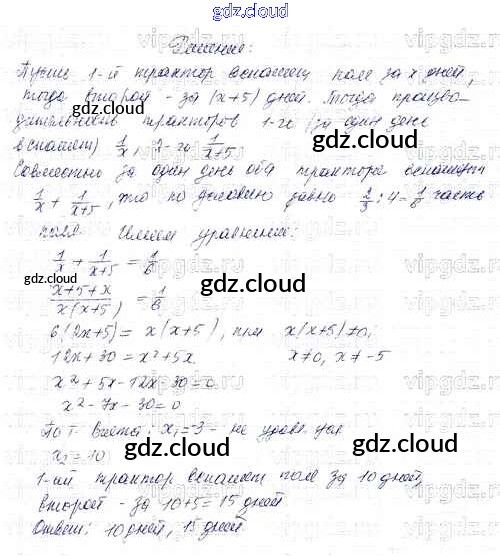 gdz.cloud
Решение:
gdz.cloud
Пусть 1-й трактор вспашет поле за x дней,
тогда второй - за (x+5) дней. Тогда произво-
дительность тракторов 1-го (за один день
вспашет) 1/x, 2-го 1/(x+5)
Совместно за один день оба трактора вспашут
1/x + 1/(x+5), что по условию равно 2/3 : 4 = 1/6 часть
поля. Имеем уравнение:
1/x + 1/(x+5) = 1/6
(x+5+x)/(x(x+5)) = 1/6
6(2x+5) = x(x+5), при x(x+5)≠0;
12x+30 = x²+5x x≠0, x≠-5
x²+5x-12x-30=0
x²-7x-30=0
По т. Виета: x₁=-3 - не удов. усл
x₂=10
1-ый трактор вспашет поле за 10 дней,
второй - за 10+5=15 дней
Ответ: 10 дней, 15 дней
gdz.cloud
gdz.cloud
gdz.cloud
gdz.cloud
gdz.cloud
gdz.cloud